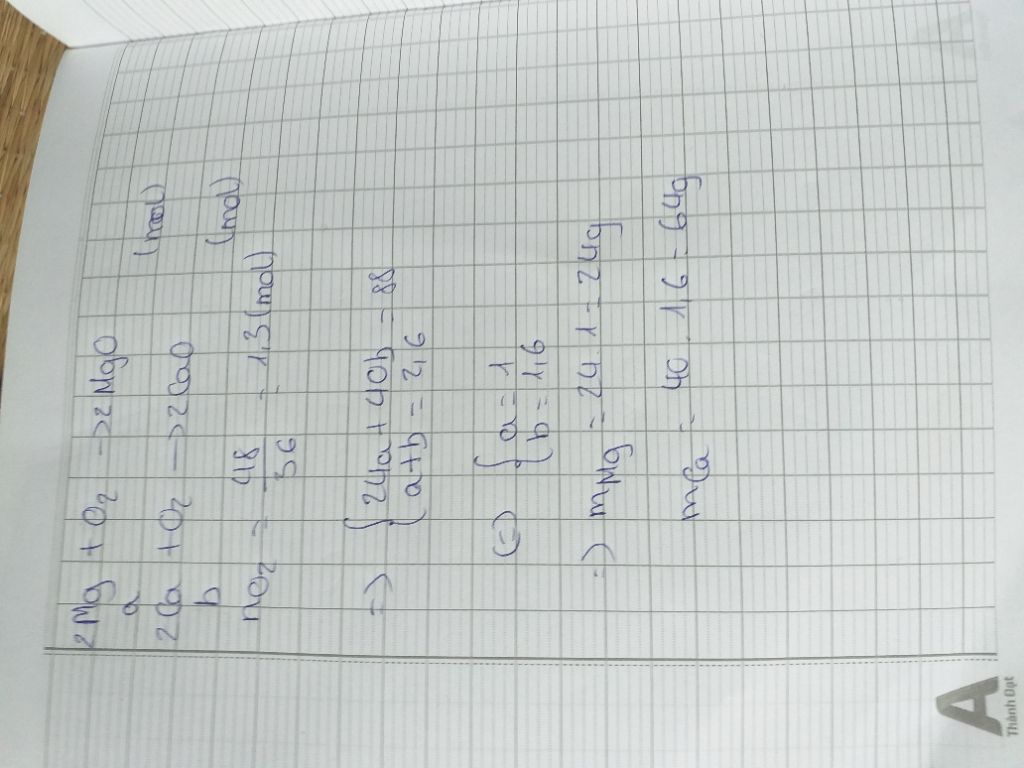 2Mg + O2 → 2MgO
a (mol)
2Ca + O2 → 2CaO
b (mol)
nO2 = 48/36 = 1,3 (mol)
=> { 24a + 40b = 88
a + b = 2,6
(=) { a = 1
b = 1,6
=) mMg = 24 . 1 = 24g
mCa = 40 . 1,6 = 64g
A
Thành Đạt